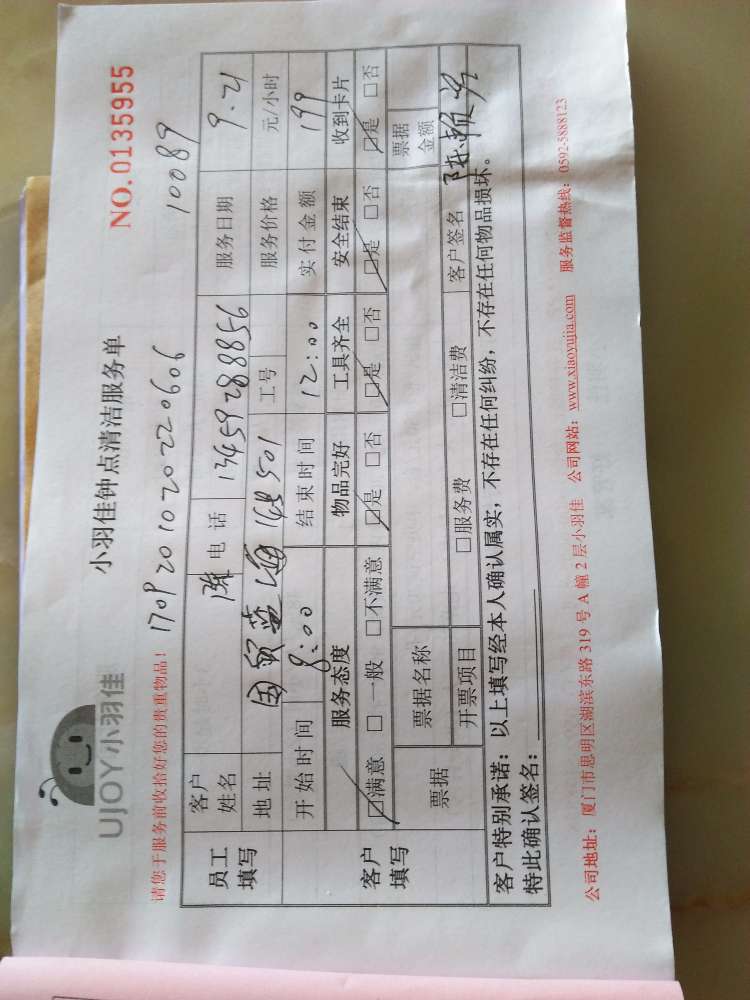 UJOY小羽佳
小羽佳钟点清洁服务单
NO.0135955
请您于服务前收拾好您的贵重物品！ 1709201020220606 10089
员工填写 客户姓名 陈 电话 13459288856 服务日期 9.21
地址 国贸蓝海 168 501 工号 服务价格 元/小时
开始时间 8:00 结束时间 12:00 实付金额 199
客户填写 服务态度 物品完好 工具齐全 安全结束 收到卡片
☑满意 □一般 □不满意 ☑是 □否 ☑是 □否 ☑是 □否 ☑是 □否
票据 票据名称 票据金额
开票项目 □服务费 □清洁费 客户签名 陈
客户特别承诺：以上填写经本人确认属实，不存在任何纠纷，不存在任何物品损坏。
特此确认签名：
公司地址：厦门市思明区湖滨东路 319 号 A 幢 2 层小羽佳 公司网站：www.xiaoyujia.com 服务监督热线：0592-5888123